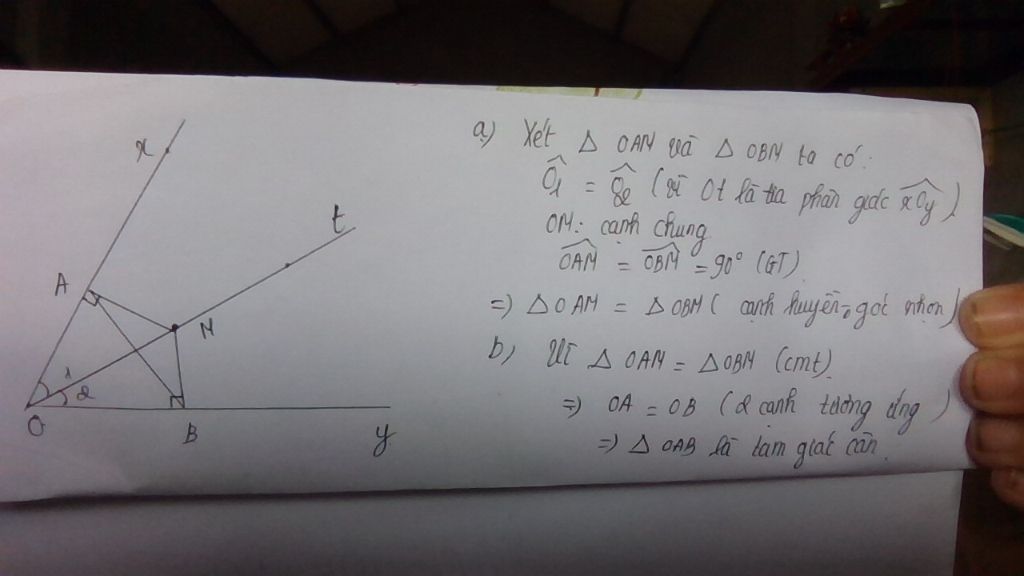 x
t
A
M
1
2
O
B
y
a) Xét Δ OAM và Δ OBM ta có:
Ô1 = Ô2 (vì Ot là tia phân giác xOy)
OM: cạnh chung
OAM = OBM = 90° (GT)
=) Δ OAM = Δ OBM ( cạnh huyền, góc nhọn)
b) Vì Δ OAM = Δ OBM (cmt)
=) OA = OB ( 2 cạnh tương ứng )
=) Δ OAB là tam giác cân.